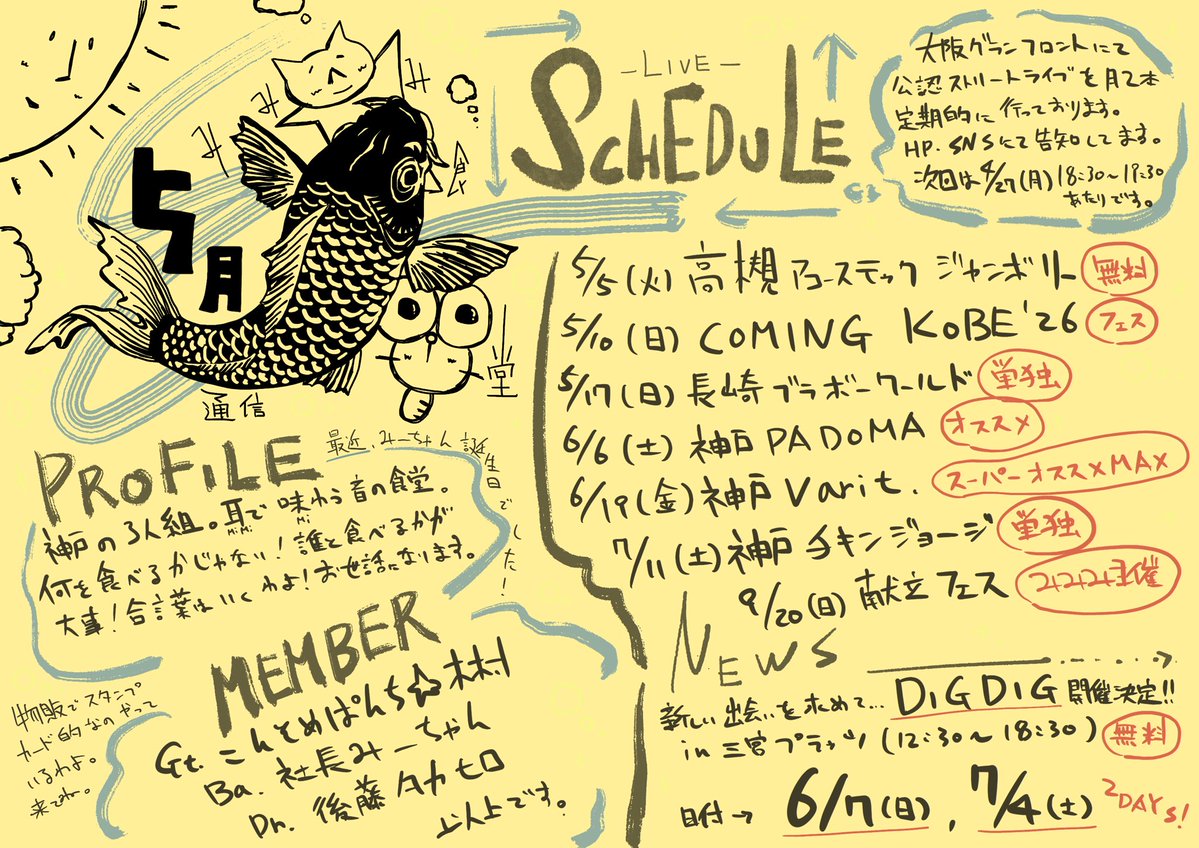 み
み
み
食
堂
5月
通信
PROFILE
最近、みーちゃん誕生日でした!
神戸の3人組。耳で味わう音の食堂。
MiMi
Mi
何を食べるかじゃない!誰と食べるかが
大事!合言葉はいくわよ!お世話になります。
MEMBER
Gt. こんとめぱんち☆木村
Ba. 社長みーちゃん
Dr. 後藤タカヒロ
以上です。
物販でスタンプ
カード的なのやって
いるわよ。
来てね。
-LIVE-
SCHEDULE
大阪グランフロントにて
公認ストリートライブを月2本
定期的に行っております。
HP.SNSにて告知してます。
次回は4/27(月)18:30~19:30
あたりです。
5/5(火)高槻アコースティック ジャンボリー 無料
5/10(日)COMING KOBE'26 フェス
5/17(日)長崎ブラボーワールド 単独
6/6(土)神戸PADOMA オススメ
6/19(金)神戸Varit. スーパーオススメMAX
7/11(土)神戸チキンジョージ 単独
9/20(日)献立フェス みみみ主催
NEWS
新しい出会いを求めて... DiGDiG開催決定!!
in 三宮プラッツ(12:30~18:30) 無料
日付→ 6/7(日), 7/4(土) 2DAYs!